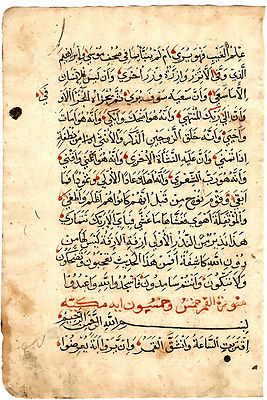 عِلْمُ الْغَيْبِ فَهُوَ يَرَى أَمْ لَمْ يُنَبَّأْ بِمَا فِي صُحُفِ مُوسَى وَإِبْرَاهِيمَ
الَّذِي وَفَّى أَلَّا تَزِرُ وَازِرَةٌ وِزْرَ أُخْرَى وَأَنْ لَيْسَ لِلْإِنْسَانِ
إِلَّا مَا سَعَى وَأَنَّ سَعْيَهُ سَوْفَ يُرَى ثُمَّ يُجْزَاهُ الْجَزَاءَ الْأَوْ
فَى
وَأَنَّ إِلَى رَبِّكَ الْمُنْتَهَى وَأَنَّهُ هُوَ أَضْحَكَ وَأَبْكَى وَأَنَّهُ هُوَ أَمَاتَ
وَأَحْيَى وَأَنَّهُ خَلَقَ الزَّوْجَيْنِ الذَّكَرَ وَالْأُنْثَى مِنْ نُطْفَةٍ
إِذَا تُمْنَى وَأَنَّ عَلَيْهِ النَّشْأَةَ الْأُخْرَى وَأَنَّهُ هُوَ أَغْنَى وَأَقْنَى
وَأَنَّهُ هُوَ رَبُّ الشِّعْرَى وَأَنَّهُ أَهْلَكَ عَادًا الْأُولَى وَثَمُودَا فَمَا
أَبْقَى وَقَوْمَ نُوحٍ مِنْ قَبْلُ إِنَّهُمْ كَانُوا هُمْ أَظْلَمَ وَأَطْغَى
وَالْمُؤْتَفِكَةَ أَهْوَى فَغَشَّاهَا مَا غَشَّى فَبِأَيِّ آلَاءِ رَبِّكَ تَتَمَارَى
هَذَا نَذِيرٌ مِنَ النُّذُرِ الْأُولَى أَزِفَتِ الْآزِفَةُ لَيْسَ لَهَا مِنْ
دُونِ اللَّهِ كَاشِفَةٌ أَفَمِنْ هَذَا الْحَدِيثِ تَعْجَبُونَ وَتَضْحَكُونَ
وَلَا تَبْكُونَ وَأَنْتُمْ سَامِدُونَ فَاسْجُدُوا لِلَّهِ وَاعْبُدُوا
سورة القمر خمس وخمسون اية مكية
بسم الله الرحمن الرحيم
اقْتَرَبَتِ السَّاعَةُ وَانْشَقَّ الْقَمَرُ وَإِنْ يَرَوْا آيَةً يُعْرِضُوا